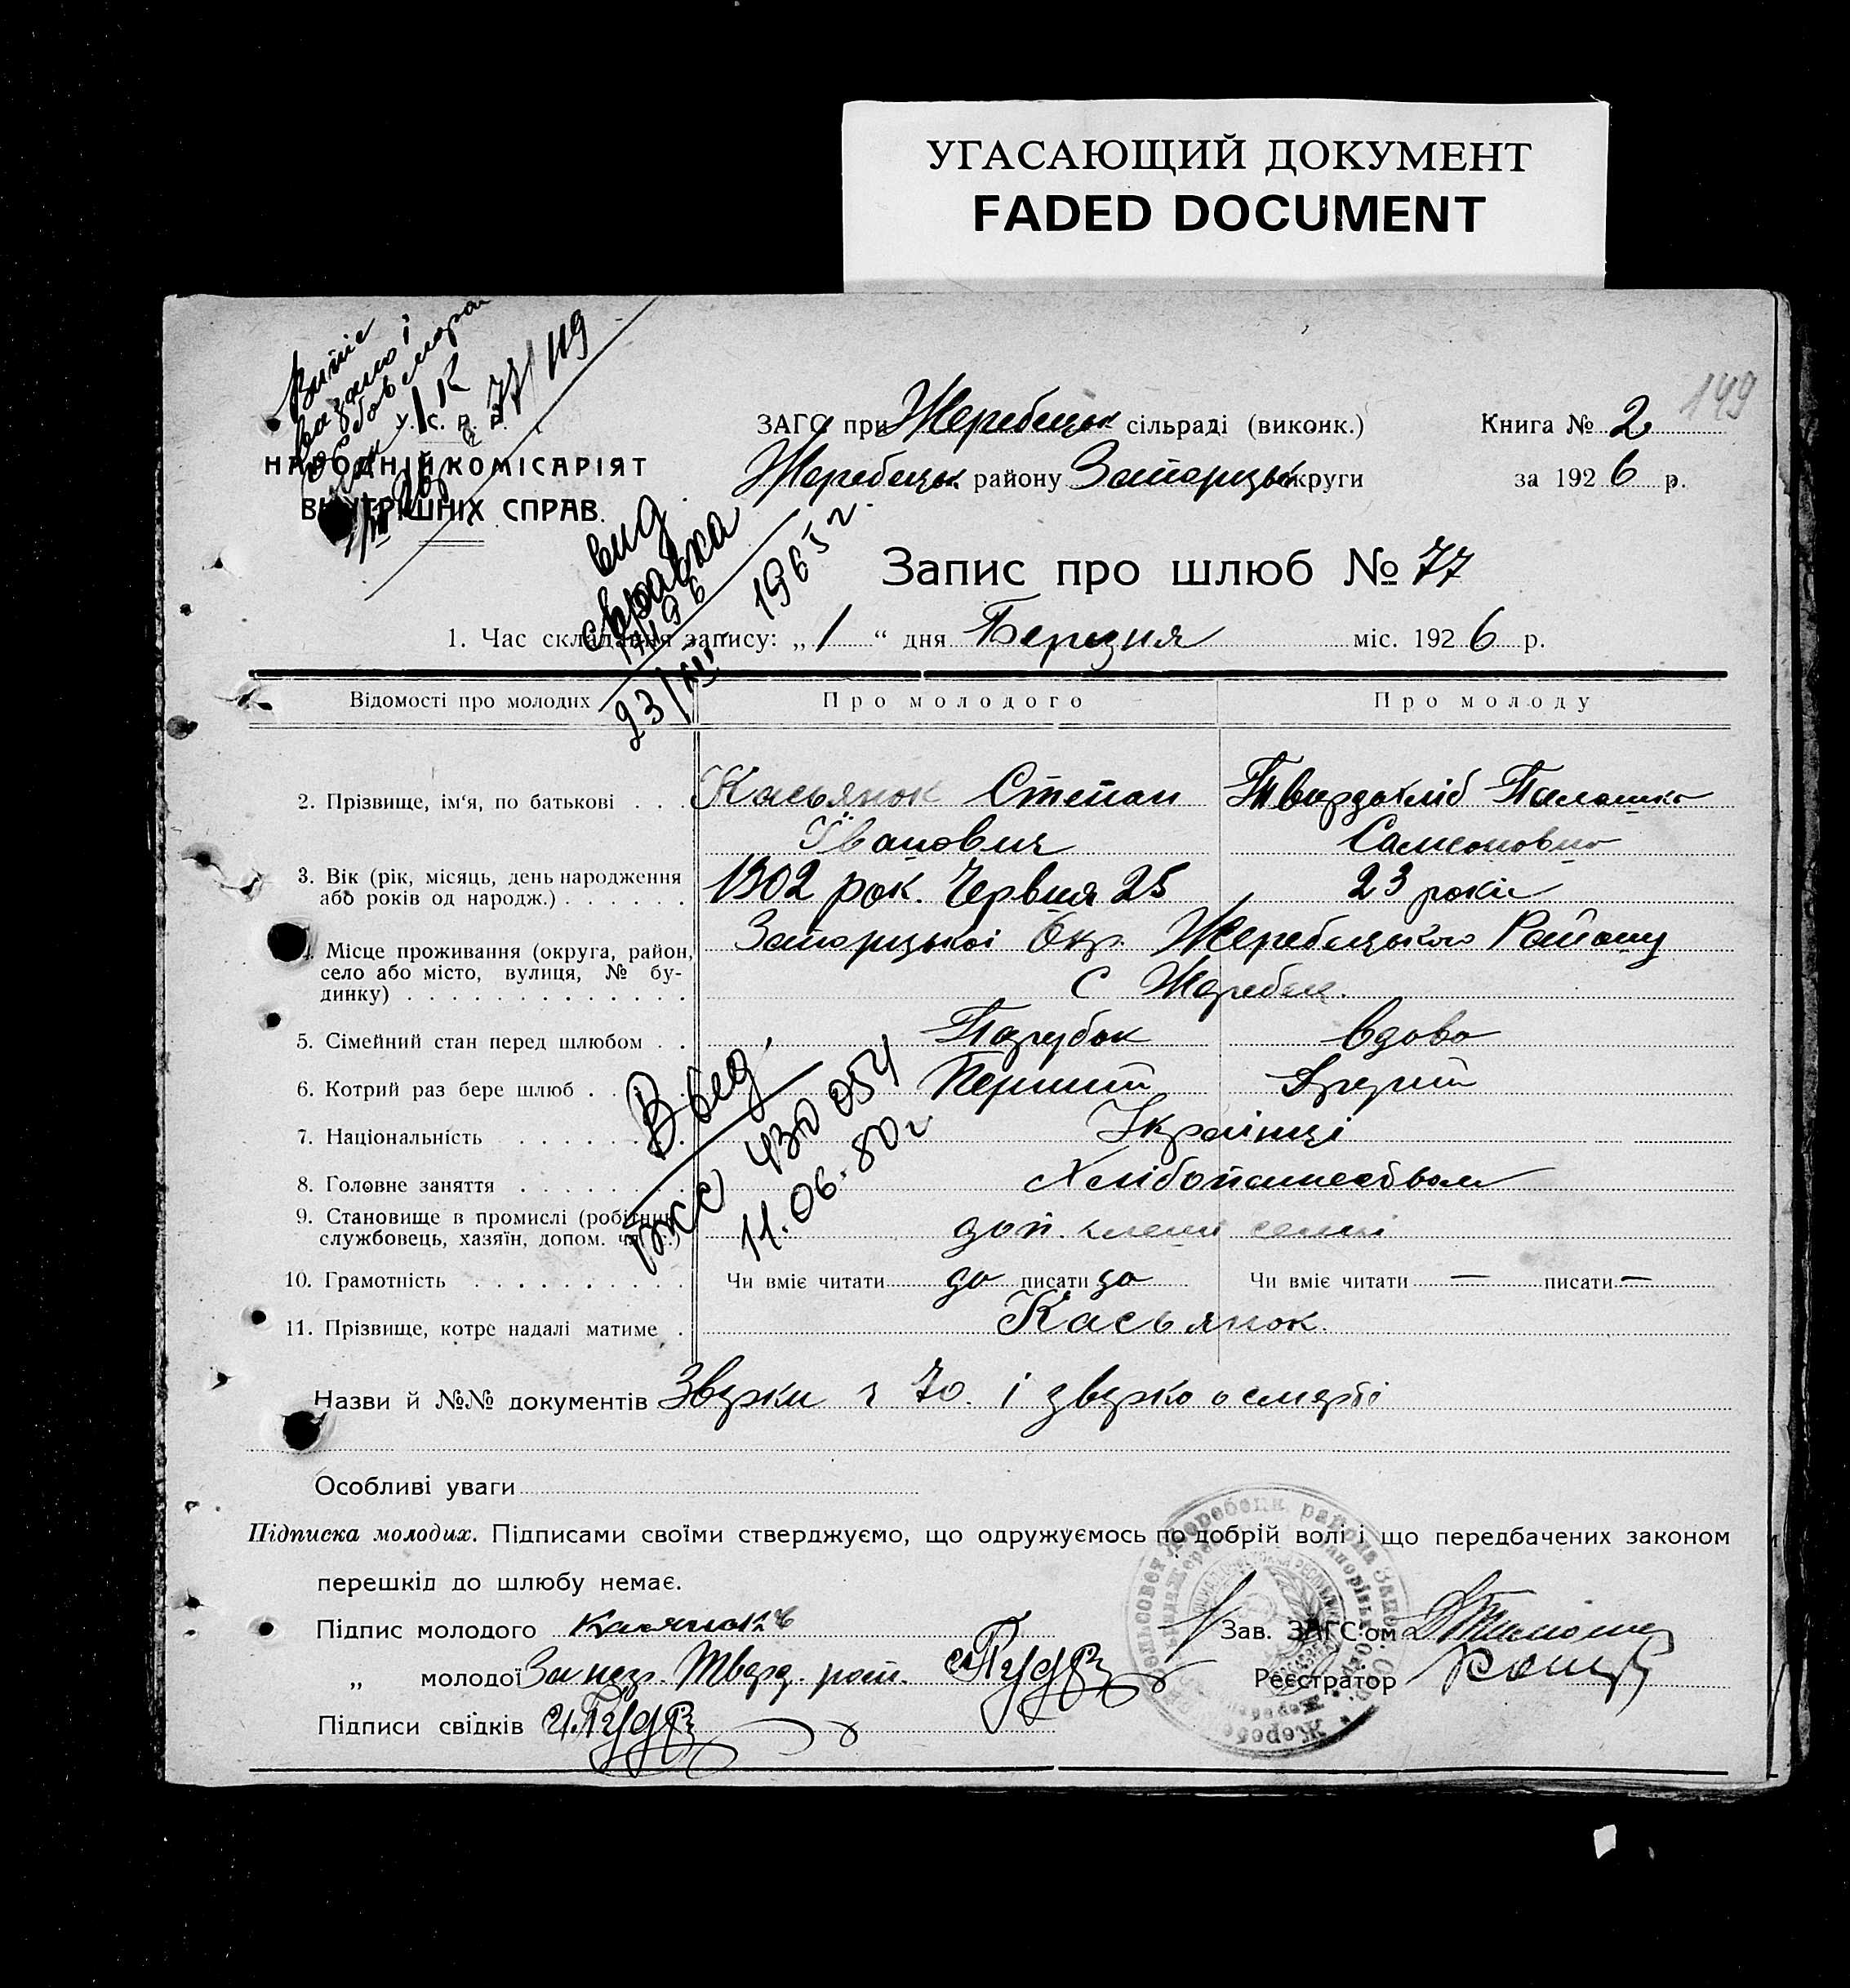 УГАСАЮЩИЙ ДОКУМЕНТ
FADED DOCUMENT
149
77/119
У. С. Р. Р.
НАРОДНІЙ КОМІСАРІЯТ
ВНУТРІШНІХ СПРАВ.
ЗАГС при Жеребецьк сільраді (виконк.) Книга № 2
Жеребецьк району Запорізьк округи за 1926 р.
вид
справка
1965 г.
23/XII
Запис про шлюб № 77
1. Час складання запису: „ 1 “ дня Березня міс. 1926 р.
Відомості про молодих Про молодого Про молоду
2. Прізвище, ім‘я, по батькові . . . Касьянок Степан Твердохліб Палашка
Іванович Самсоновна
3. Вік (рік, місяць, день народження 1902 рок. Червня 25 23 роки
або років од народж.) . . . . . .
4. Місце проживання (округа, район, Запорізької Окр. Жеребецького Району
село або місто, вулиця, № бу-
динку) . . . . . . . . . . . . . С Жеребец.
5. Сімейний стан перед шлюбом . . Парубок вдова
6. Котрий раз бере шлюб . . Перший Другий
7. Національність . . . . . . Українці
8. Головне заняття . . . . . . Хлібопашеством
9. Становище в промислі (робітник,
службовець, хазяїн, допом. чл. доп. члени семьі
10. Грамотність . . . . . . . . . Чи вміє читати да писати да Чи вміє читати — писати —
11. Прізвище, котре надалі матиме . Касьянок.
Выд
430054
11.06.80г
Назви й №№ документів Звірки з 70. і звірка о смерті
Особливі уваги
Підписка молодих. Підписами своїми стверджуємо, що одружуємось по добрій волі і що передбачених законом
перешкід до шлюбу немає.
Підпис молодого Зав. ЗАГС‘ом
„ молодої За незр. Тверд. рози. Реєстратор
Підписи свідків